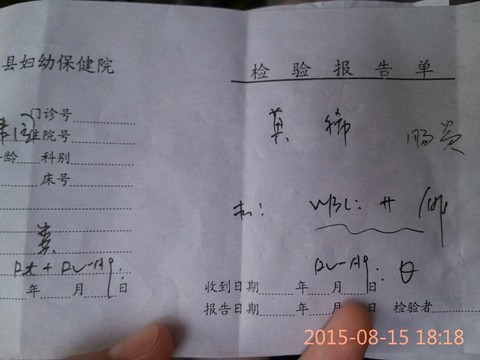 县妇幼保健院
门诊号
住院号
科别
床号
粪
Rt + RV-Ag.
年 月 日
检验报告单
黄 稀
WBC: ++ /HP
RV-Ag: ⊖
收到日期 年 月 日
报告日期 年 月 日 检验者
2015-08-15 18:18